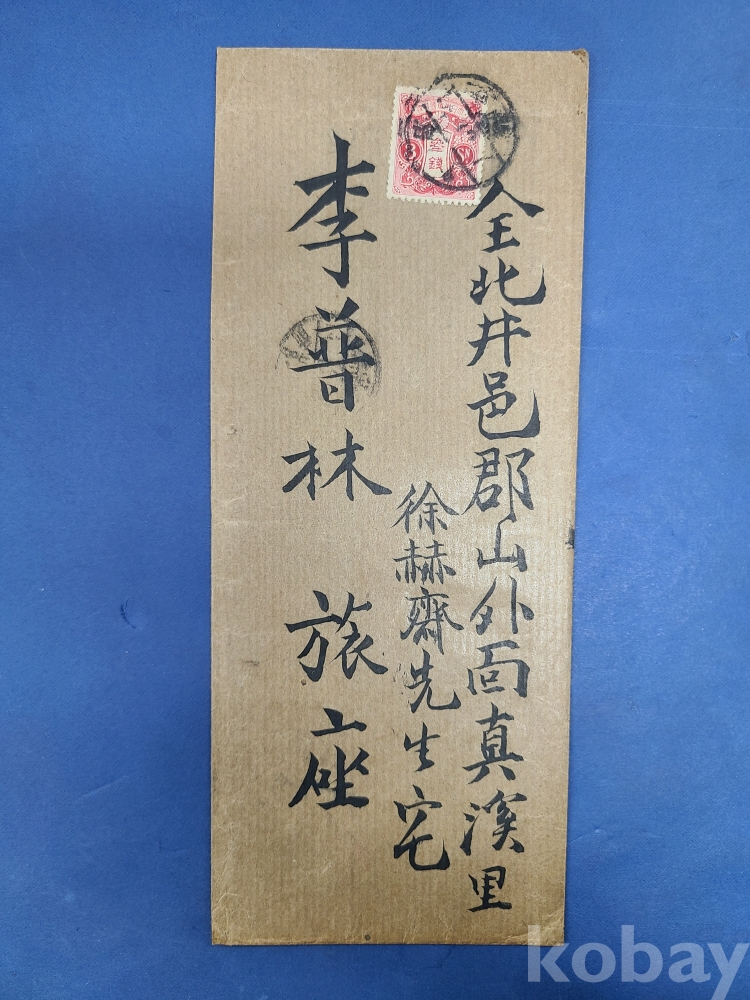 全北井邑郡山外面真溪里
徐赫齋先生宅
李普林 旅座
3
SN
參錢
kobay